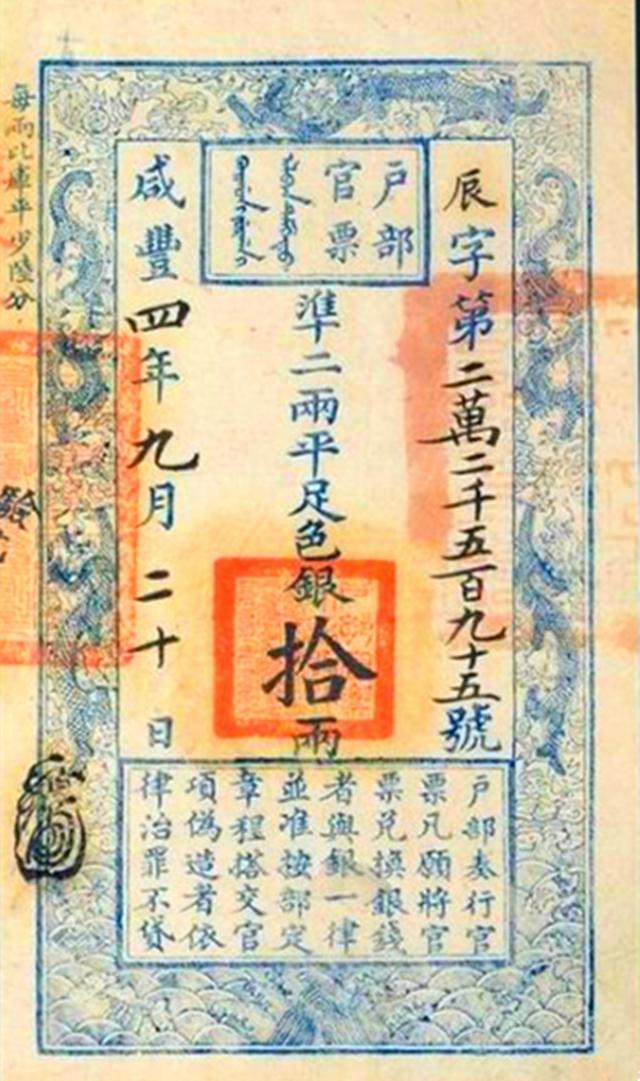 戶部
官票
辰字第二萬二千五百九十五號
準二兩平足色銀拾兩
咸豐四年九月二十日
戶部奏行官
票凡願將官
票兑換銀錢
者與銀一律
並准按部定
章程搭交官
項偽造者依
律治罪不貸
每兩比庫平少陸分